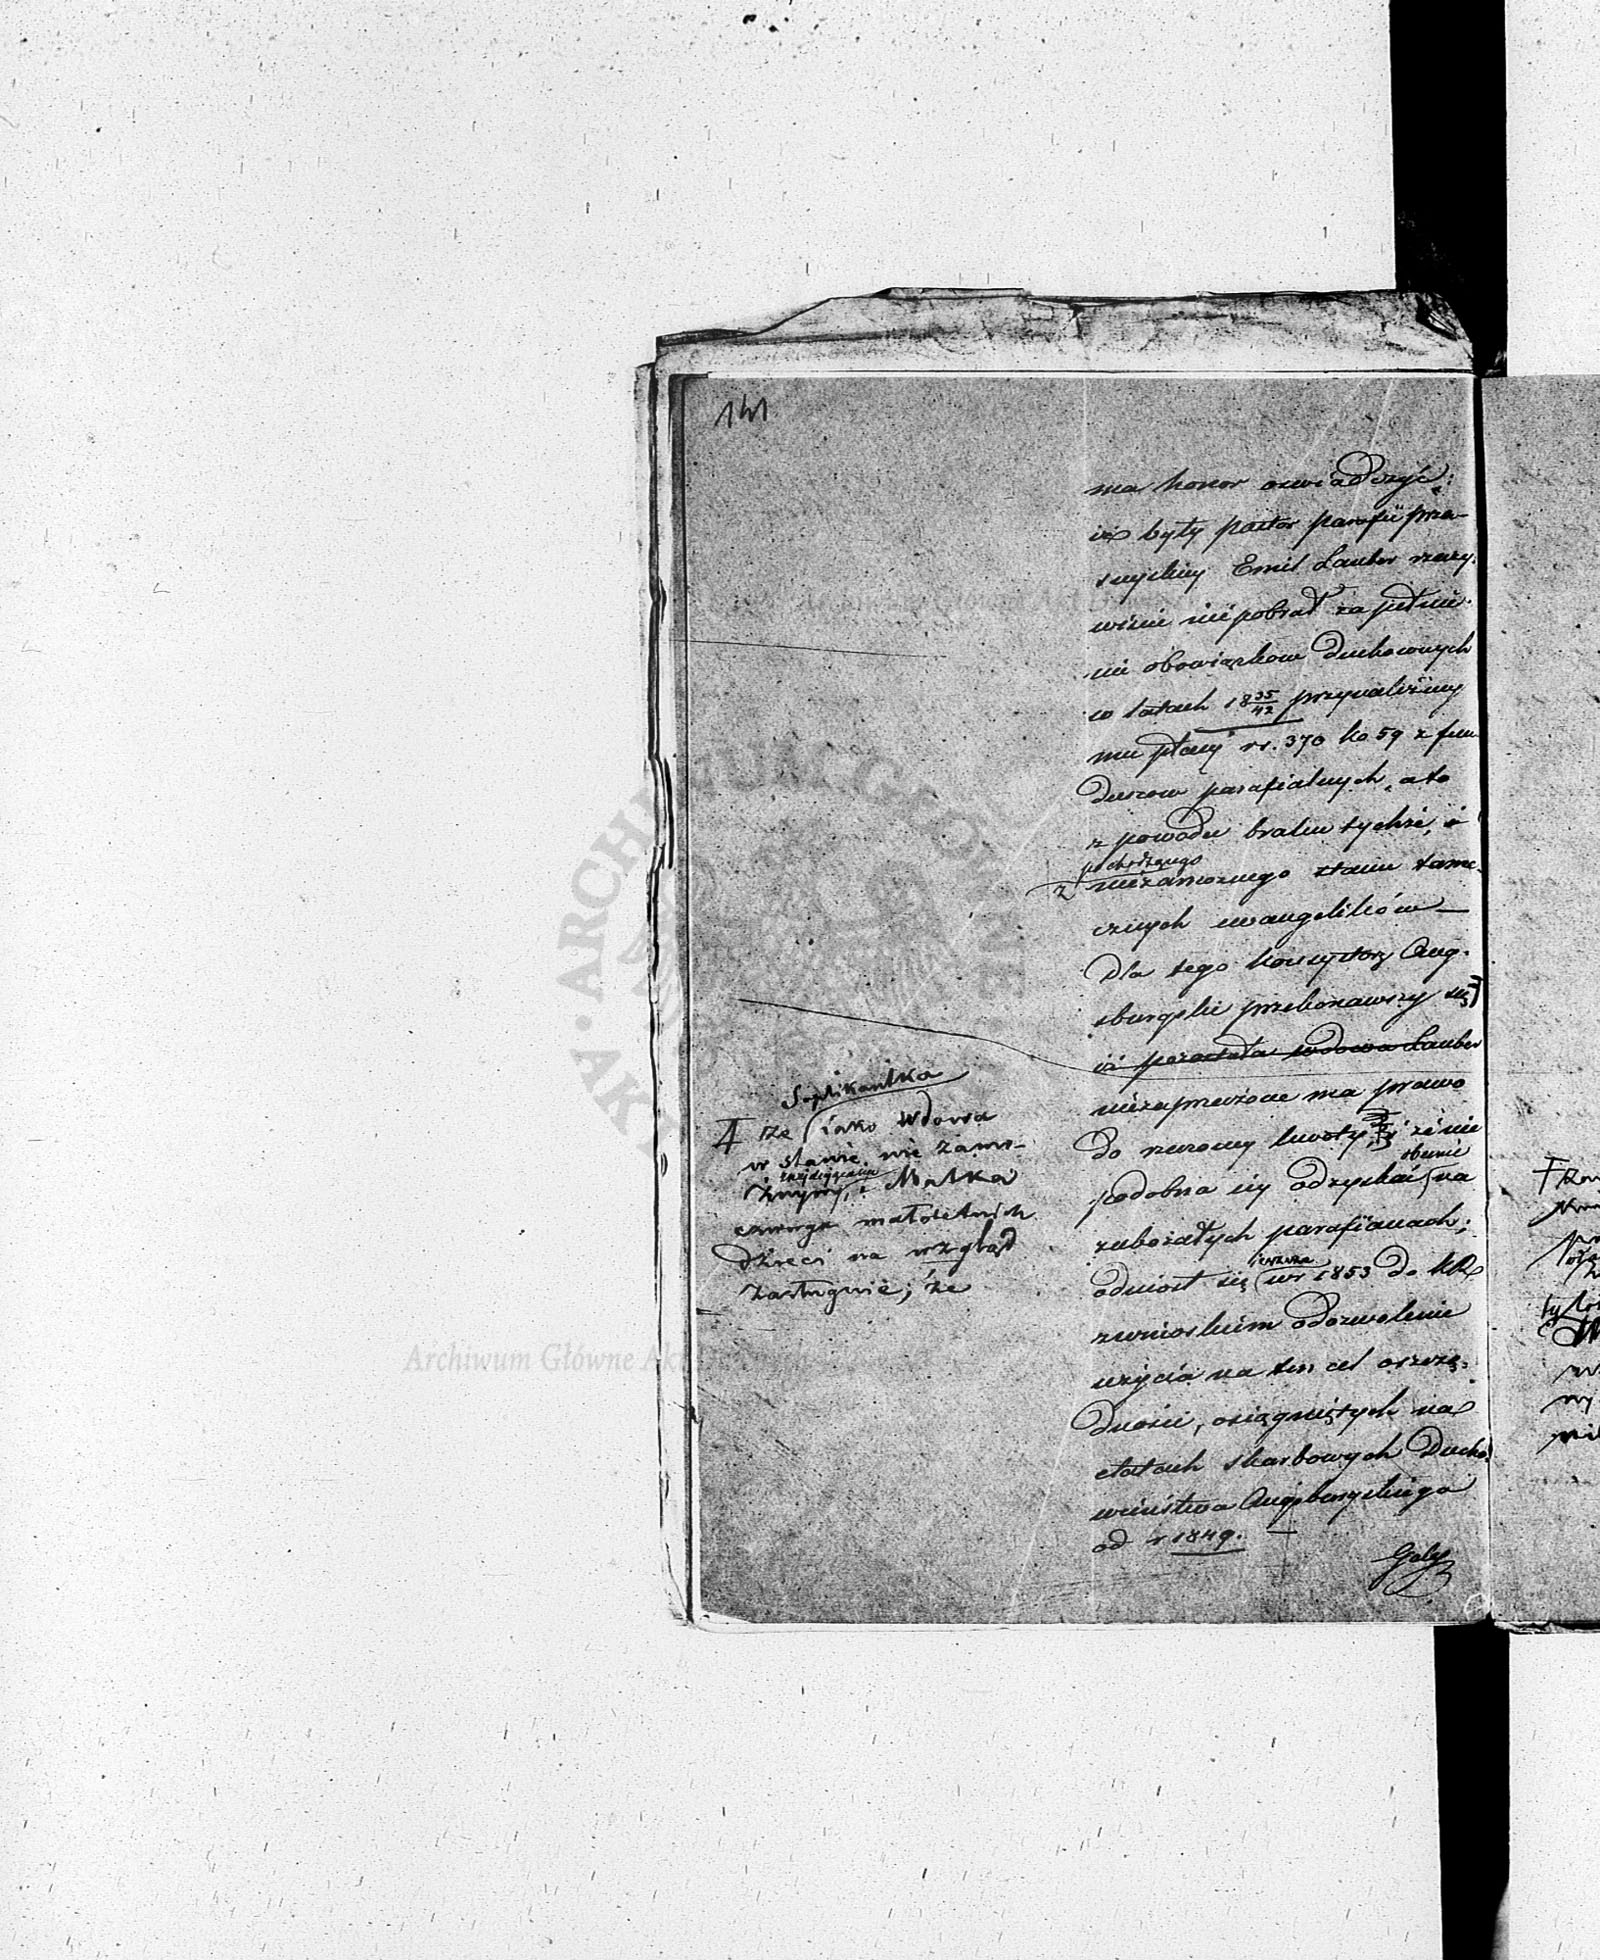 141
ma honor oświadczyć:
iż były pastor parafii prza-
snyskiej Emil Lauber rzeczy:
wiście nie pobrał za pełnie-
nie obowiązkow duchownych
w latach 18 35/42 przynależnej
mu płacy rs. 370 ko 59 z fun
duszow parafialnych, a to
z powodu braku tychże,
pochodzącego
z niezamożnego stanu tame-
cznych ewangelików —
Dla tego konsystorz Aug-
sburgski przekonawszy się
iż pozostała wdowa Lauber
niezaprzeczone ma prawo
do rzeczonej kwoty, że nie
obecnie
podobna jej odzyskać na
zubożałych parafianach;
odniosł się w r 1853 do KR
z wnioskiem o dozwolenie
użycia na ten cel oszczę-
dności, osiągniętych na
etatach skarbowych Ducho-
wieństwa Augsburgskiego
od r 1849.
Suplikantka
że jako wdowa
w stanie nie zamo-
żnym, i Matka
czworga małoletnich
dzieci na wzgląd
zasługuie; że
Archiwum Główne Akt Dawnych
ARCHIWUM GŁÓWNE AKT